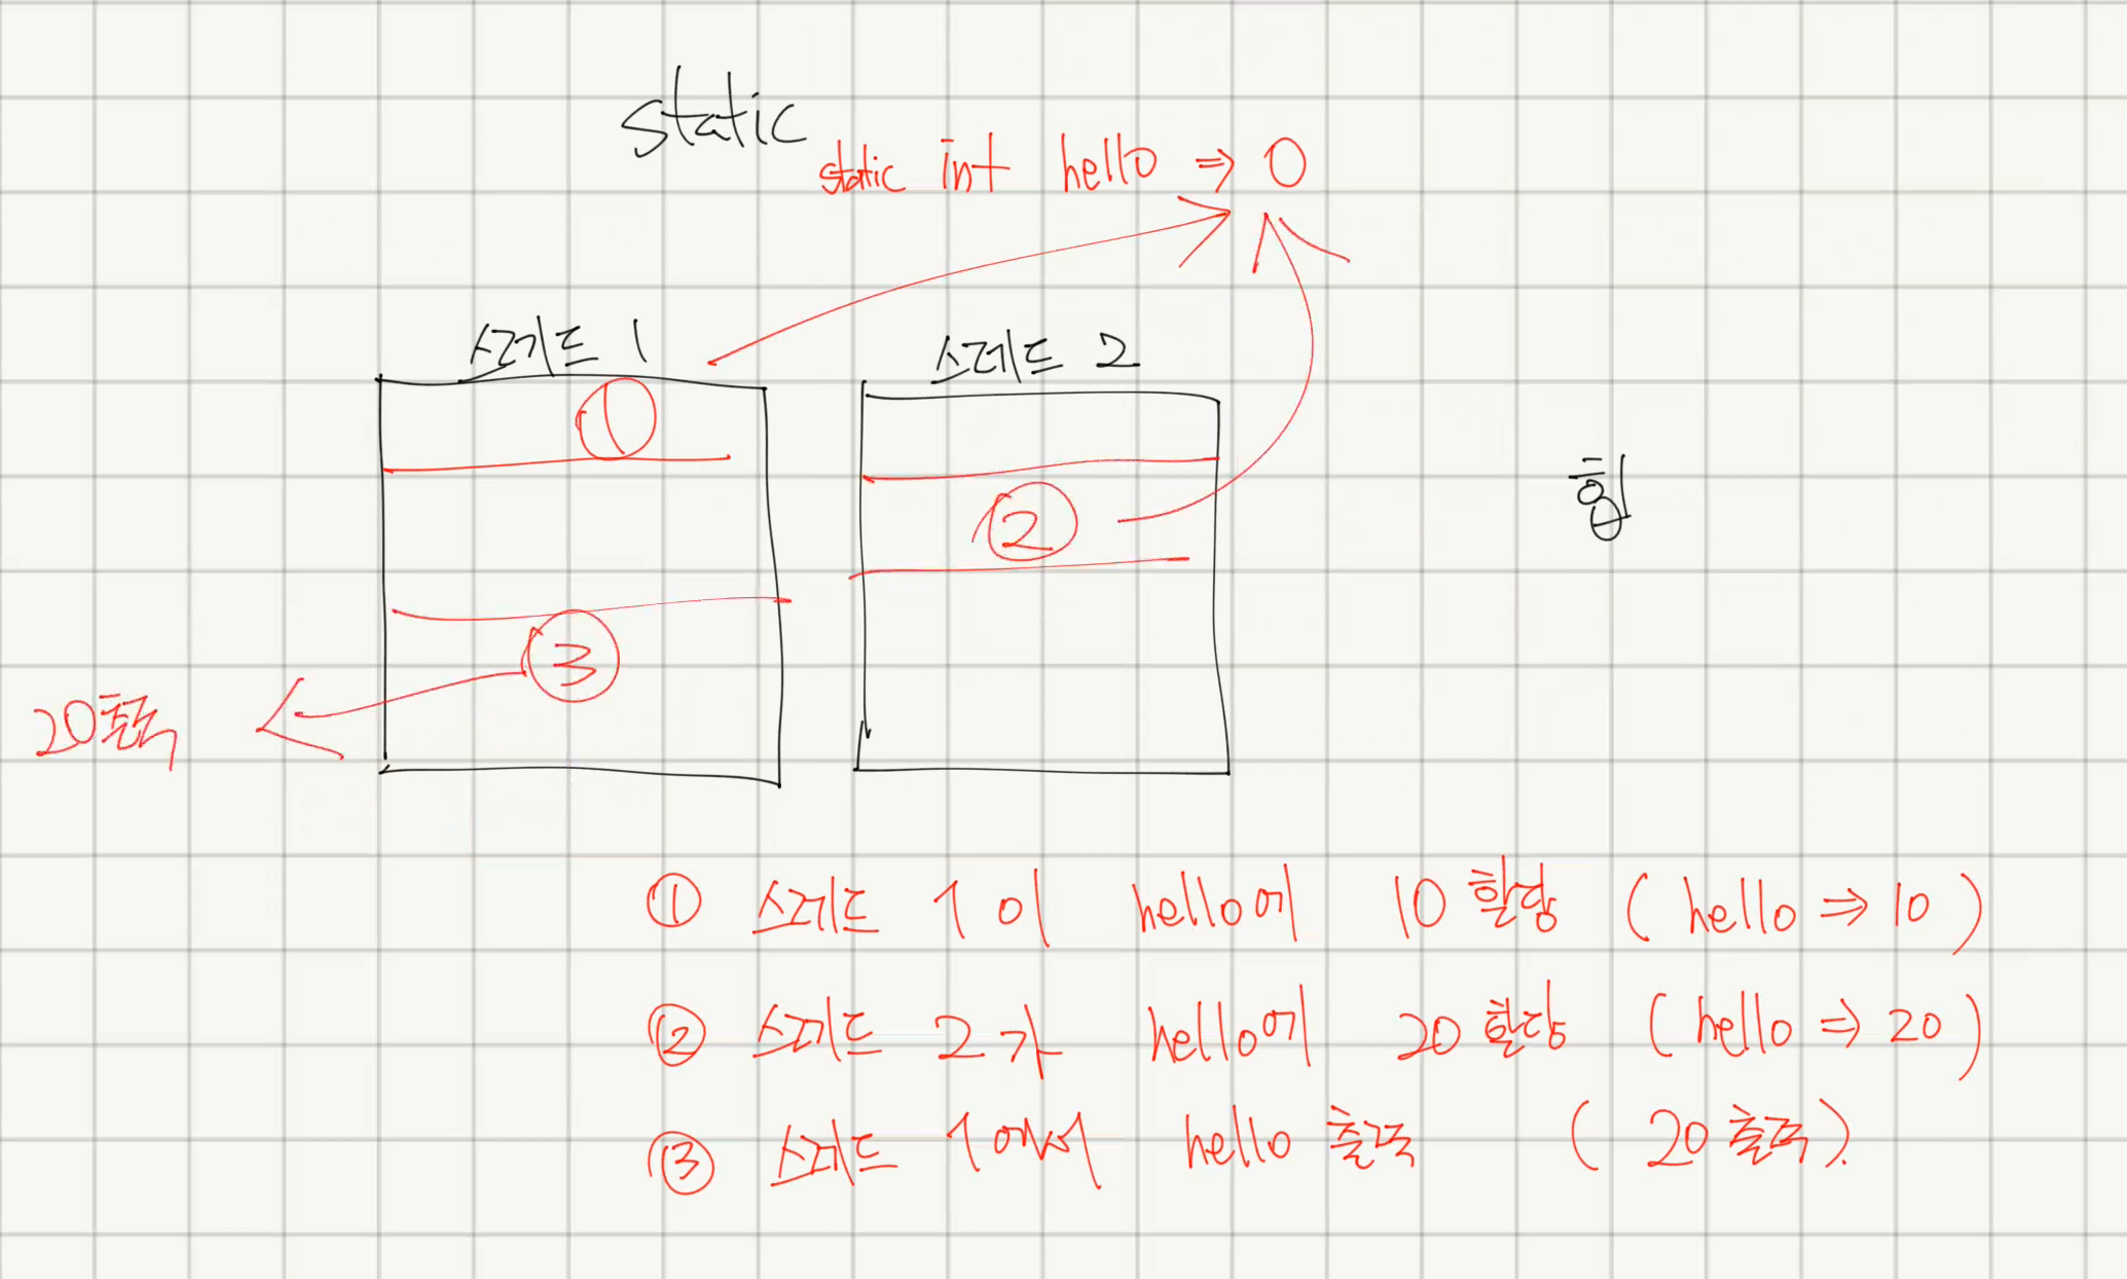 static
static int hello ⇒ 0
스레드 1
스레드 2
①
힙
②
③
20출력
① 스레드 1이 hello에 10 할당 (hello ⇒ 10)
② 스레드 2가 hello에 20 할당 (hello ⇒ 20)
③ 스레드 1에서 hello 출력 (20 출력).